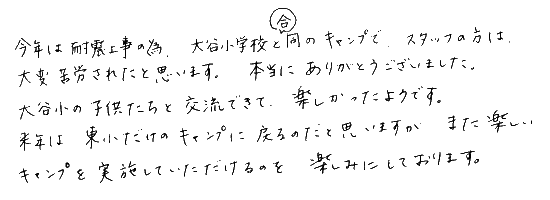 今年は耐震工事の為、大谷小学校と合同のキャンプで、スタッフの方は、
大変苦労されたと思います。 本当にありがとうございました。
大谷小の子供たちと交流できて、楽しかったようです。
来年は東小だけのキャンプに戻るのだと思いますが また楽しい
キャンプを実施していただけるのを 楽しみにしております。